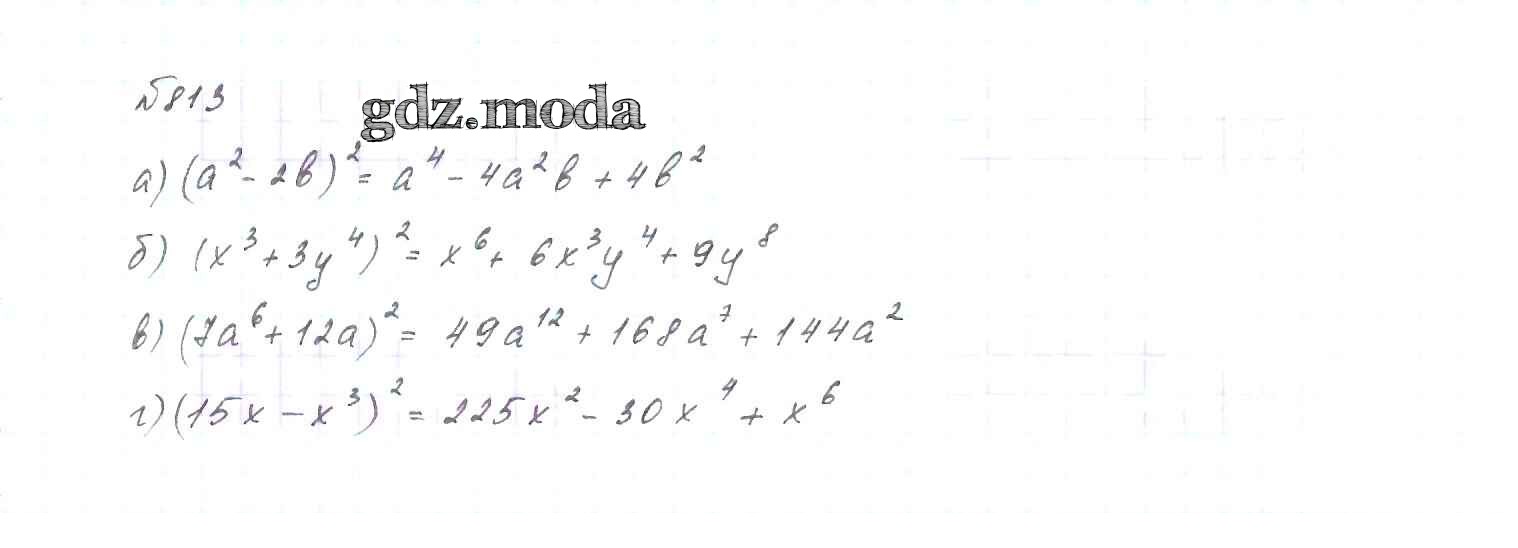 №813
gdz.moda
а) (a² - 2b)² = a⁴ - 4a²b + 4b²
б) (x³ + 3y⁴)² = x⁶ + 6x³y⁴ + 9y⁸
в) (7a⁶ + 12a)² = 49a¹² + 168a⁷ + 144a²
г) (15x - x³)² = 225x² - 30x⁴ + x⁶